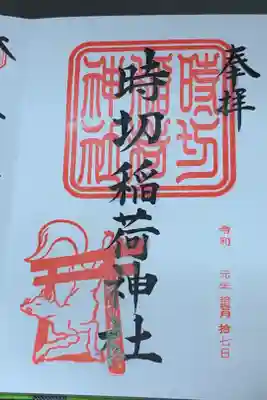 奉拝
時切稲荷神社
時切
稲荷
神社
令和 元年 拾月 拾七日